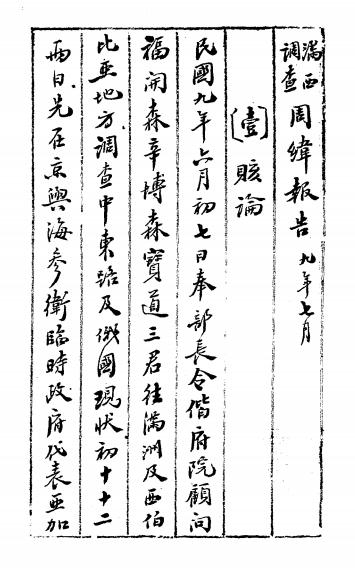 滿西調查周緯報告 九年七月
〔壹〕賅論
民國九年六月初七日奉部長令偕府院顧問
福開森辛博森寶道三君往滿洲及西伯
比亞地方調查中東路及俄國現狀初十十二
兩日先在京與海參衛臨時政府代表亞加